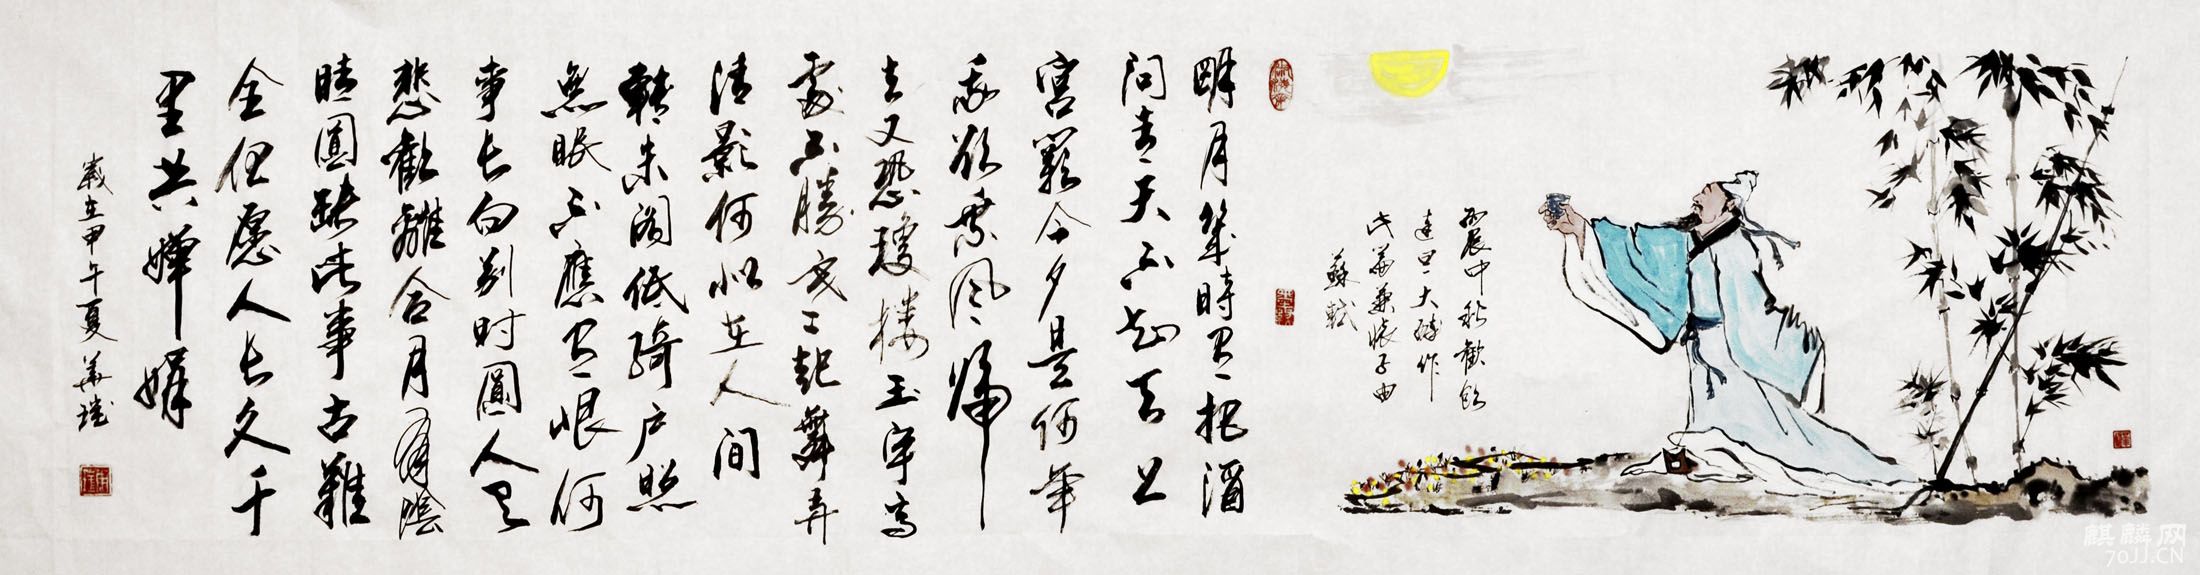 丙辰中秋歡飲
達旦大醉作
此篇兼懷子由
蘇軾
明月幾時有把酒
問青天不知天上
宮闕今夕是何年
我欲乘風歸
去又恐瓊樓玉宇高
處不勝寒起舞弄
清影何似在人間
轉朱阁低綺户照
無眠不應有恨何
事长向别时圓人有
悲歡離合月有陰
晴圓缺此事古難
全但愿人长久千
里共嬋娟
歲在甲午夏
麒麟网
70JJ.CN